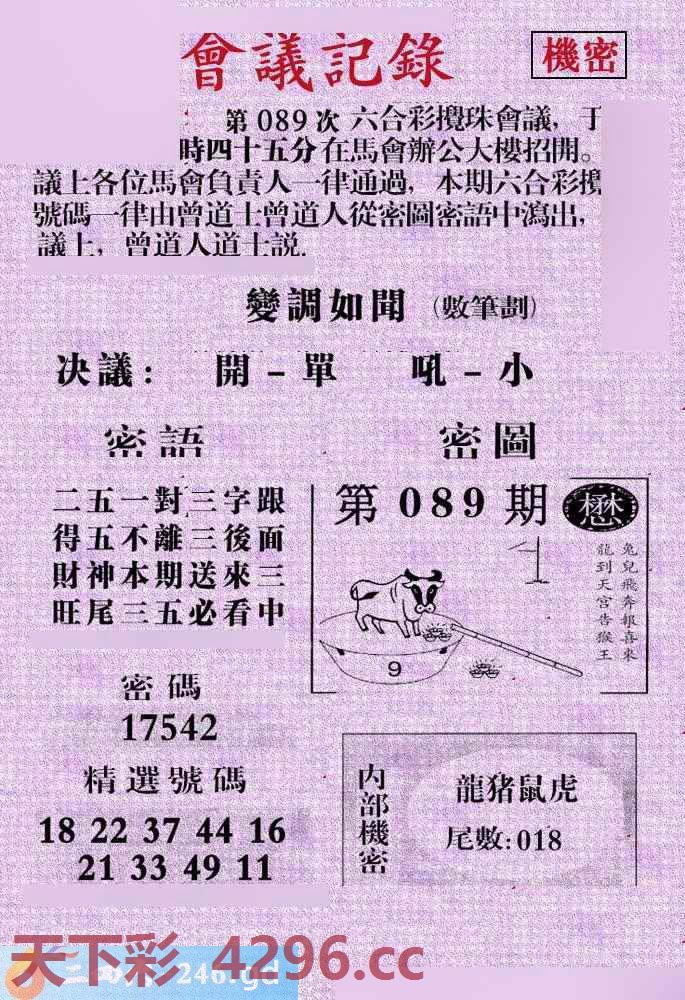 會議記錄
機密
第 089 次 六合彩攪珠會議，于
時四十五分在馬會辦公大樓招開。
議上各位馬會負責人一律通過，本期六合彩攪
號碼一律由曾道士曾道人從密圖密語中瀉出，
議上，曾道人道士説.
變調如聞（數筆劃）
决議： 開－單 吼－小
密語
二五一對三字跟
得五不離三後面
財神本期送來三
旺尾三五必看中
密圖
第 089 期
懋
兔兒飛奔報喜來
龍到天宮告猴王
9
密碼
17542
精選號碼
18 22 37 44 16
21 33 49 11
内部機密
龍猪鼠虎
尾數:018
天下彩 4296.cc
246.gd